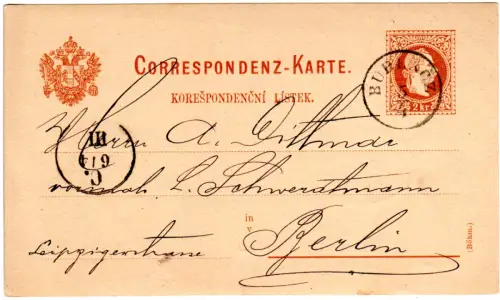 CORRESPONDENZ-KARTE.
KOREŠPONDENČNÍ LÍSTEK.
2 kr.
Herrn A. Dittmar
vormals L. Schwerdtmann
in
v
Berlin
Leipzigerstrasse
(Böhm.)
III
6 14
C.